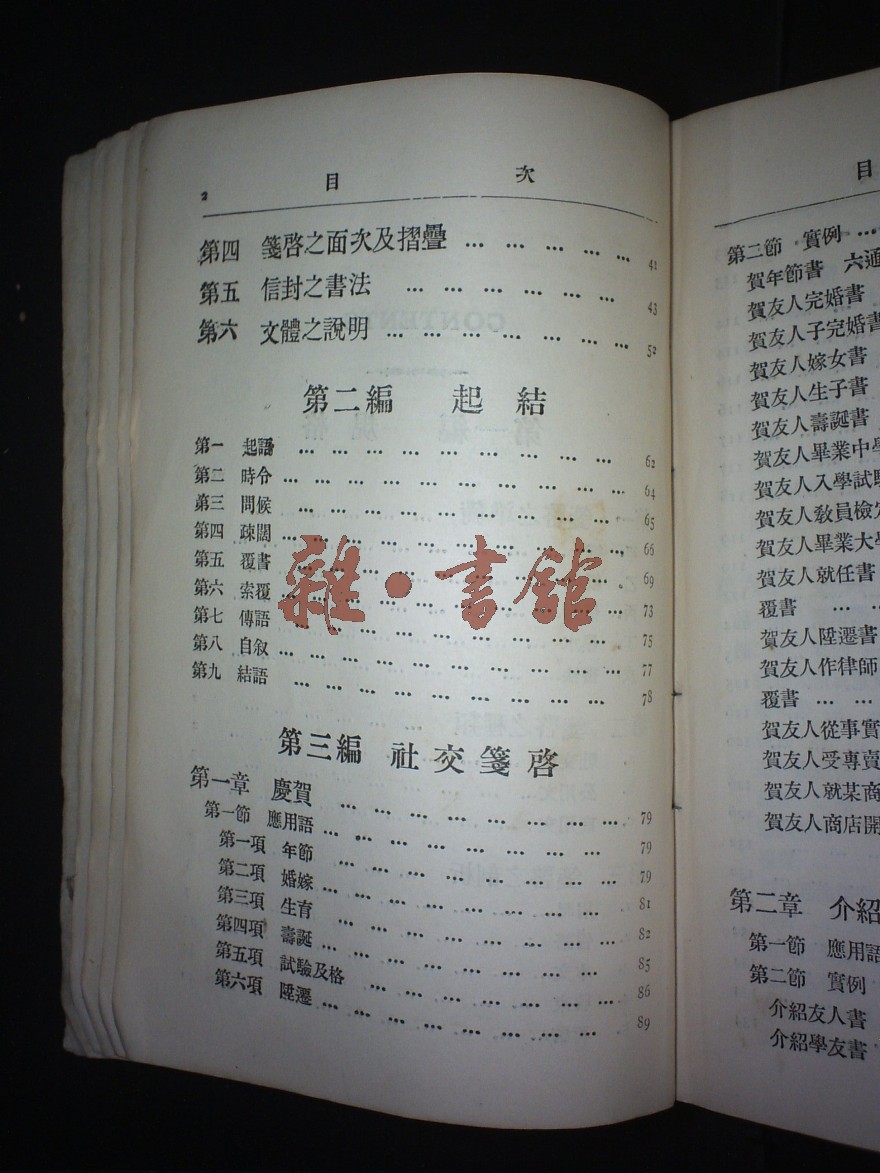 2 目 次
第四 箋啓之面次及摺疊 … … … … … 41
第五 信封之書法 … … … … … 43
第六 文體之說明 … … … … … … 52
第二編 起結
第一 起語 … … … … … … … … … 62
第二 時令 … … … … … … … … … 64
第三 問候 … … … … … … … … … 65
第四 疎闊 … … … … … … … … … 66
第五 覆書 … … … … … … … … … 69
第六 索覆 … … … … … … … … … 73
第七 傳語 … … … … … … … … … 75
第八 自叙 … … … … … … … … … 77
第九 結語 … … … … … … … … … 78
雜·書館
第三編 社交箋啓
第一章 慶賀 … … … … … … … … 79
第一節 應用語 … … … … … … … … 79
第一項 年節 … … … … … … … … 79
第二項 婚嫁 … … … … … … … … 81
第三項 生育 … … … … … … … … 82
第四項 壽誕 … … … … … … … … 85
第五項 試驗及格 … … … … … … … 86
第六項 陞遷 … … … … … … … … 89
目
第二節 實例 …
賀年節書 六通
賀友人完婚書
賀友人子完婚書
賀友人嫁女書
賀友人生子書
賀友人壽誕書
賀友人畢業中學
賀友人入學試驗
賀友人敎員檢定
賀友人畢業大學
賀友人就任書
覆書 … …
賀友人陞遷書
賀友人作律師
覆書 … …
賀友人從事實
賀友人受專賣
賀友人就某商
賀友人商店開
第二章 介紹
第一節 應用語
第二節 實例
介紹友人書
介紹學友書